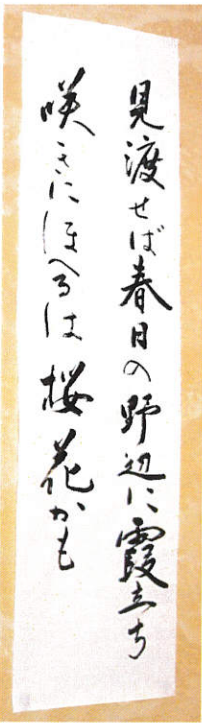 見渡せば春日の野辺に霞立ち
咲きにほへるは桜花かも